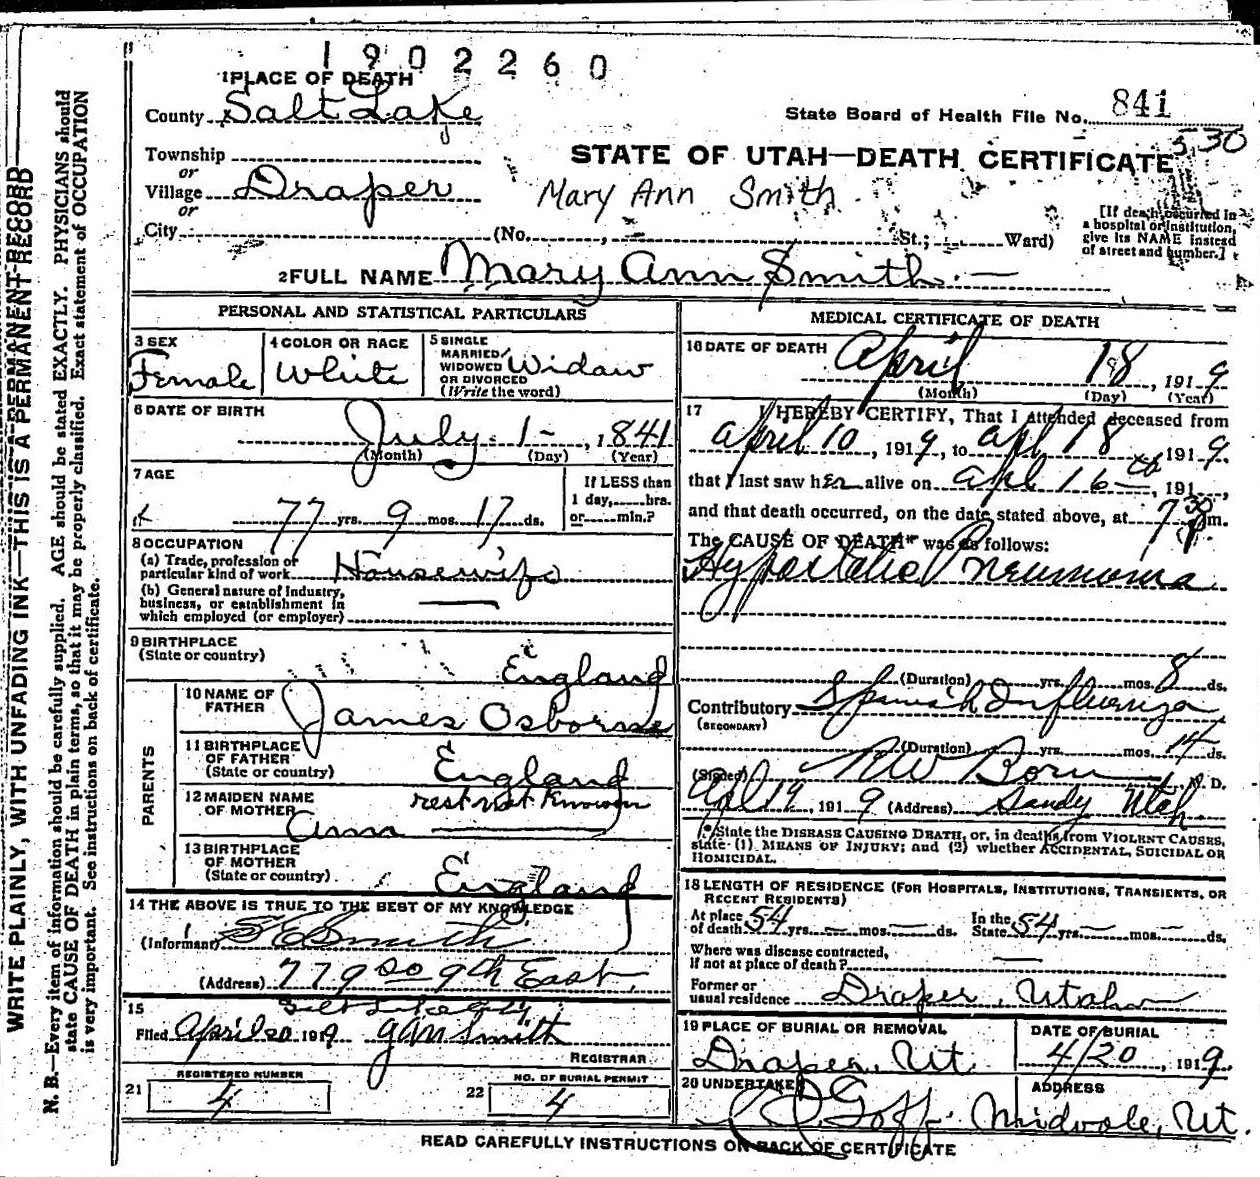 1902260
1 PLACE OF DEATH
County Salt Lake
State Board of Health File No. 841
530
Township
or
Village Draper
or
City (No. , St.; Ward)
STATE OF UTAH—DEATH CERTIFICATE
Mary Ann Smith
[If death occurred in
a hospital or institution,
give its NAME instead
of street and number.]
2 FULL NAME Mary Ann Smith
PERSONAL AND STATISTICAL PARTICULARS
3 SEX
Female
4 COLOR OR RACE
White
5 SINGLE
MARRIED
WIDOWED
OR DIVORCED
(Write the word)
Widow
6 DATE OF BIRTH
July 1 - , 1841
(Month) (Day) (Year)
7 AGE
77 yrs. 9 mos. 17 ds.
If LESS than
1 day, hrs.
or min.?
8 OCCUPATION
(a) Trade, profession or
particular kind of work Housewife
(b) General nature of industry,
business, or establishment in
which employed (or employer)
9 BIRTHPLACE
(State or country)
England
PARENTS
10 NAME OF
FATHER
James Osborne
11 BIRTHPLACE
OF FATHER
(State or country)
England
12 MAIDEN NAME
OF MOTHER
rest not known
Ann
13 BIRTHPLACE
OF MOTHER
(State or country)
England
14 THE ABOVE IS TRUE TO THE BEST OF MY KNOWLEDGE
(Informant) S E Smith
(Address) 779 so 9th East
Salt Lake City
15
Filed April 20 1919 Smith
REGISTRAR
REGISTERED NUMBER
21 4
NO. OF BURIAL PERMIT
22 4
MEDICAL CERTIFICATE OF DEATH
16 DATE OF DEATH
April 18, 1919
(Month) (Day) (Year)
17 I HEREBY CERTIFY, That I attended deceased from
April 10, 1919, to Apl 18 1919,
that I last saw her alive on Apl 16th, 191 ,
and that death occurred, on the date stated above, at 7 30 P m.
The CAUSE OF DEATH* was as follows:
Hypostatic Pneumonia
(Duration) yrs. mos. 8 ds.
Contributory Spanish Influenza
(SECONDARY)
(Duration) yrs. mos. 14 ds.
(Signed) R W Born M. D.
Apl 19 1919 (Address) Sandy Utah
*State the DISEASE CAUSING DEATH, or, in deaths from VIOLENT CAUSES,
state (1) MEANS OF INJURY; and (2) whether ACCIDENTAL, SUICIDAL OR
HOMICIDAL.
18 LENGTH OF RESIDENCE (FOR HOSPITALS, INSTITUTIONS, TRANSIENTS, OR
RECENT RESIDENTS)
At place
of death 54 yrs. mos. ds.
In the
State 54 yrs. mos. ds.
Where was disease contracted,
If not at place of death?
Former or
usual residence Draper, Utah
19 PLACE OF BURIAL OR REMOVAL
Draper, Ut.
DATE OF BURIAL
4/20, 1919.
20 UNDERTAKER
Goff
ADDRESS
Midvale, Ut.
READ CAREFULLY INSTRUCTIONS ON BACK OF CERTIFICATE
WRITE PLAINLY, WITH UNFADING INK—THIS IS A PERMANENT RECORD
N. B.—Every item of information should be carefully supplied. AGE should be stated EXACTLY. PHYSICIANS should
state CAUSE OF DEATH in plain terms, so that it may be properly classified. Exact statement of OCCUPATION
is very important. See instructions on back of certificate.